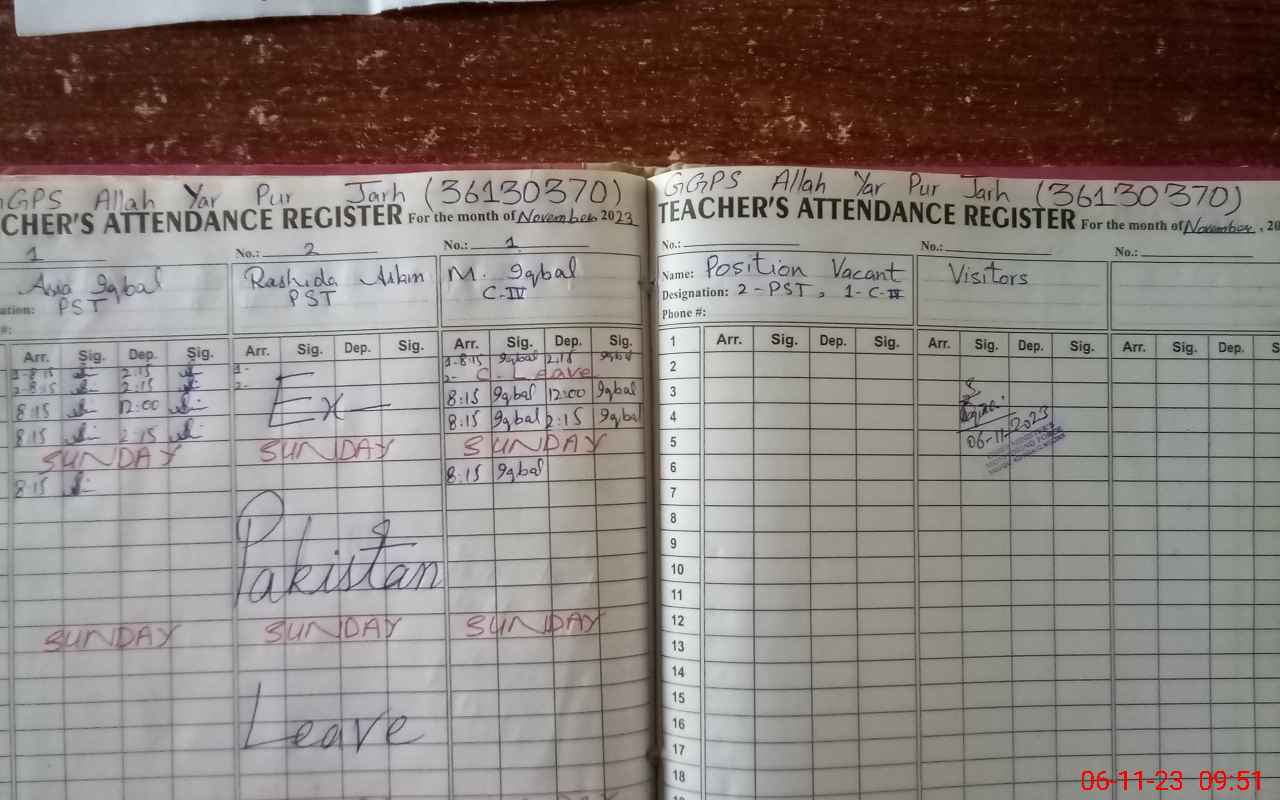 GGPS Allah Yar Pur Jarh (36130370)
CHER'S ATTENDANCE REGISTER For the month of November 2023
1 No.: 2 No.: 1
Asia Iqbal Rashida Aslam M. Iqbal
PST PST C-IV
ation:
#:
Arr. Sig. Dep. Sig. Arr. Sig. Dep. Sig. Arr. Sig. Dep. Sig.
1-8:15 2:15 1- 1-8:15 Iqbal 2:15 Iqbal
2-8:15 2:15 2- 2- C-Leave
8:15 12:00 Ex- 8:15 Iqbal 12:00 Iqbal
8:15 2:15 8:15 Iqbal 2:15 Iqbal
SUNDAY SUNDAY SUNDAY
8:15 8:15 Iqbal
Pakistan
SUNDAY SUNDAY SUNDAY
Leave
GGPS Allah Yar Pur Jarh (36130370)
TEACHER'S ATTENDANCE REGISTER For the month of November, 20
No.: No.: No.:
Name: Position Vacant Visitors
Designation: 2-PST, 1-C-IV
Phone #:
Arr. Sig. Dep. Sig. Arr. Sig. Dep. Sig. Arr. Sig. Dep. S
1
2
3
4
06-11-2023
5
6
7
8
9
10
11
12
13
14
15
16
17
18
06-11-23 09:51